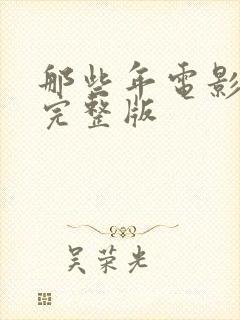 那些年電影
完整版
吴荣光